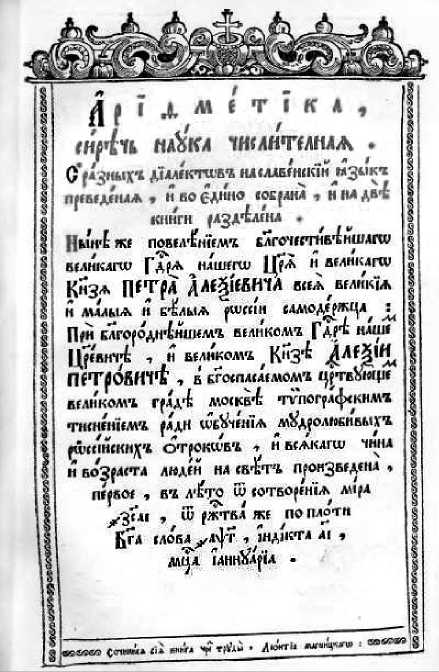 А҆ріѳме́тїка,
си́рѣчь наꙋ́ка числи́телная.
С ра́зныхъ дїале́ктѡвъ на славе́нскїй ꙗ҆зы́къ
преведе́наѧ, и҆ во є҆ди́но собрана̀, и҆ на двѣ̀
кни́ги раздѣле́на.
Ны́нѣ же повелѣ́нїемъ бл҃гочести́вѣйшагѡ
вели́кагѡ Гдⷭ҇рѧ на́шегѡ Цр҃ѧ̀ и҆ вели́кагѡ
Кн҃зѧ ПЕТРА̀ А҆ЛЕѮІ́ЕВИЧА всеѧ̀ вели́кїѧ
и҆ ма́лыѧ и҆ бѣ́лыѧ рѡссі́и самоде́ржца:
Прѝ бл҃горо́днѣйшемъ вели́комъ Гдⷭ҇рѣ на́шемъ
Цр҃е́вичѣ, и҆ вели́комъ Кн҃зѣ А҆ЛЕѮІ́И
ПЕТРО́ВИЧѢ, в бг҃оспаса́емомъ црⷭ҇твꙋющемъ
вели́комъ гра́дѣ москвѣ̀ тѷпогра́фскимъ
тисне́нїемъ ра́ди ѡ҆бꙋче́нїѧ мꙋдролюби́выхъ
рѡссі́йскихъ о҆́трокѡвъ, и҆ всѧ́кагѡ чи́на
и҆ во́зраста люде́й на свѣ́тъ произведена̀,
пе́рвое, въ лѣ́то ѿ сотворе́нїѧ мі́ра
҂зс҃аі, ѿ ржⷭ҇тва̀ же по пло́ти
Бг҃а сло́ва ҂аѱ҃г, і҆ндї́кта а҃і,
мцⷭ҇а і҆аннꙋа́рїа.
Сочини́сѧ сїѧ̀ кни́га чре́з трꙋды̀ Лео́нтїа магни́цкагѡ: